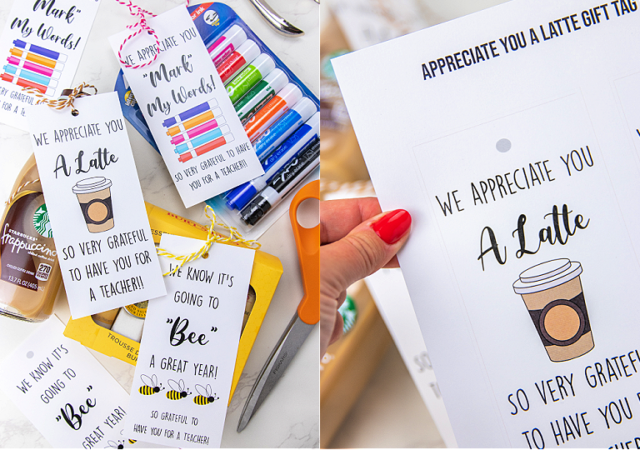 "Mark"
My Words!
WE APPRECIATE YOU
"Mark"
My Words!
SO VERY GRATEFUL TO HAVE
YOU FOR A TEACHER!!
WE APPRECIATE YOU
A Latte
SO VERY GRATEFUL
TO HAVE YOU FOR
A TEACHER!!
STARBUCKS
frappuccino
WE KNOW IT'S
GOING TO
"Bee"
A GREAT YEAR!
SO GRATEFUL TO
HAVE YOU FOR A TEACHER!
WE KNOW IT'S
GOING TO
"Bee"
GREAT YEAR!
APPRECIATE YOU A LATTE GIFT TAG
WE APPRECIATE YOU
A Latte
SO VERY
TO HAVE YOU